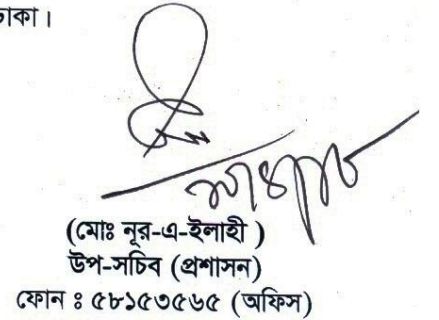 ঢাকা।
(মোঃ নূর-এ-ইলাহী )
উপ-সচিব (প্রশাসন)
ফোন ঃ ৫৮১৫৩৫৬৫ (অফিস)